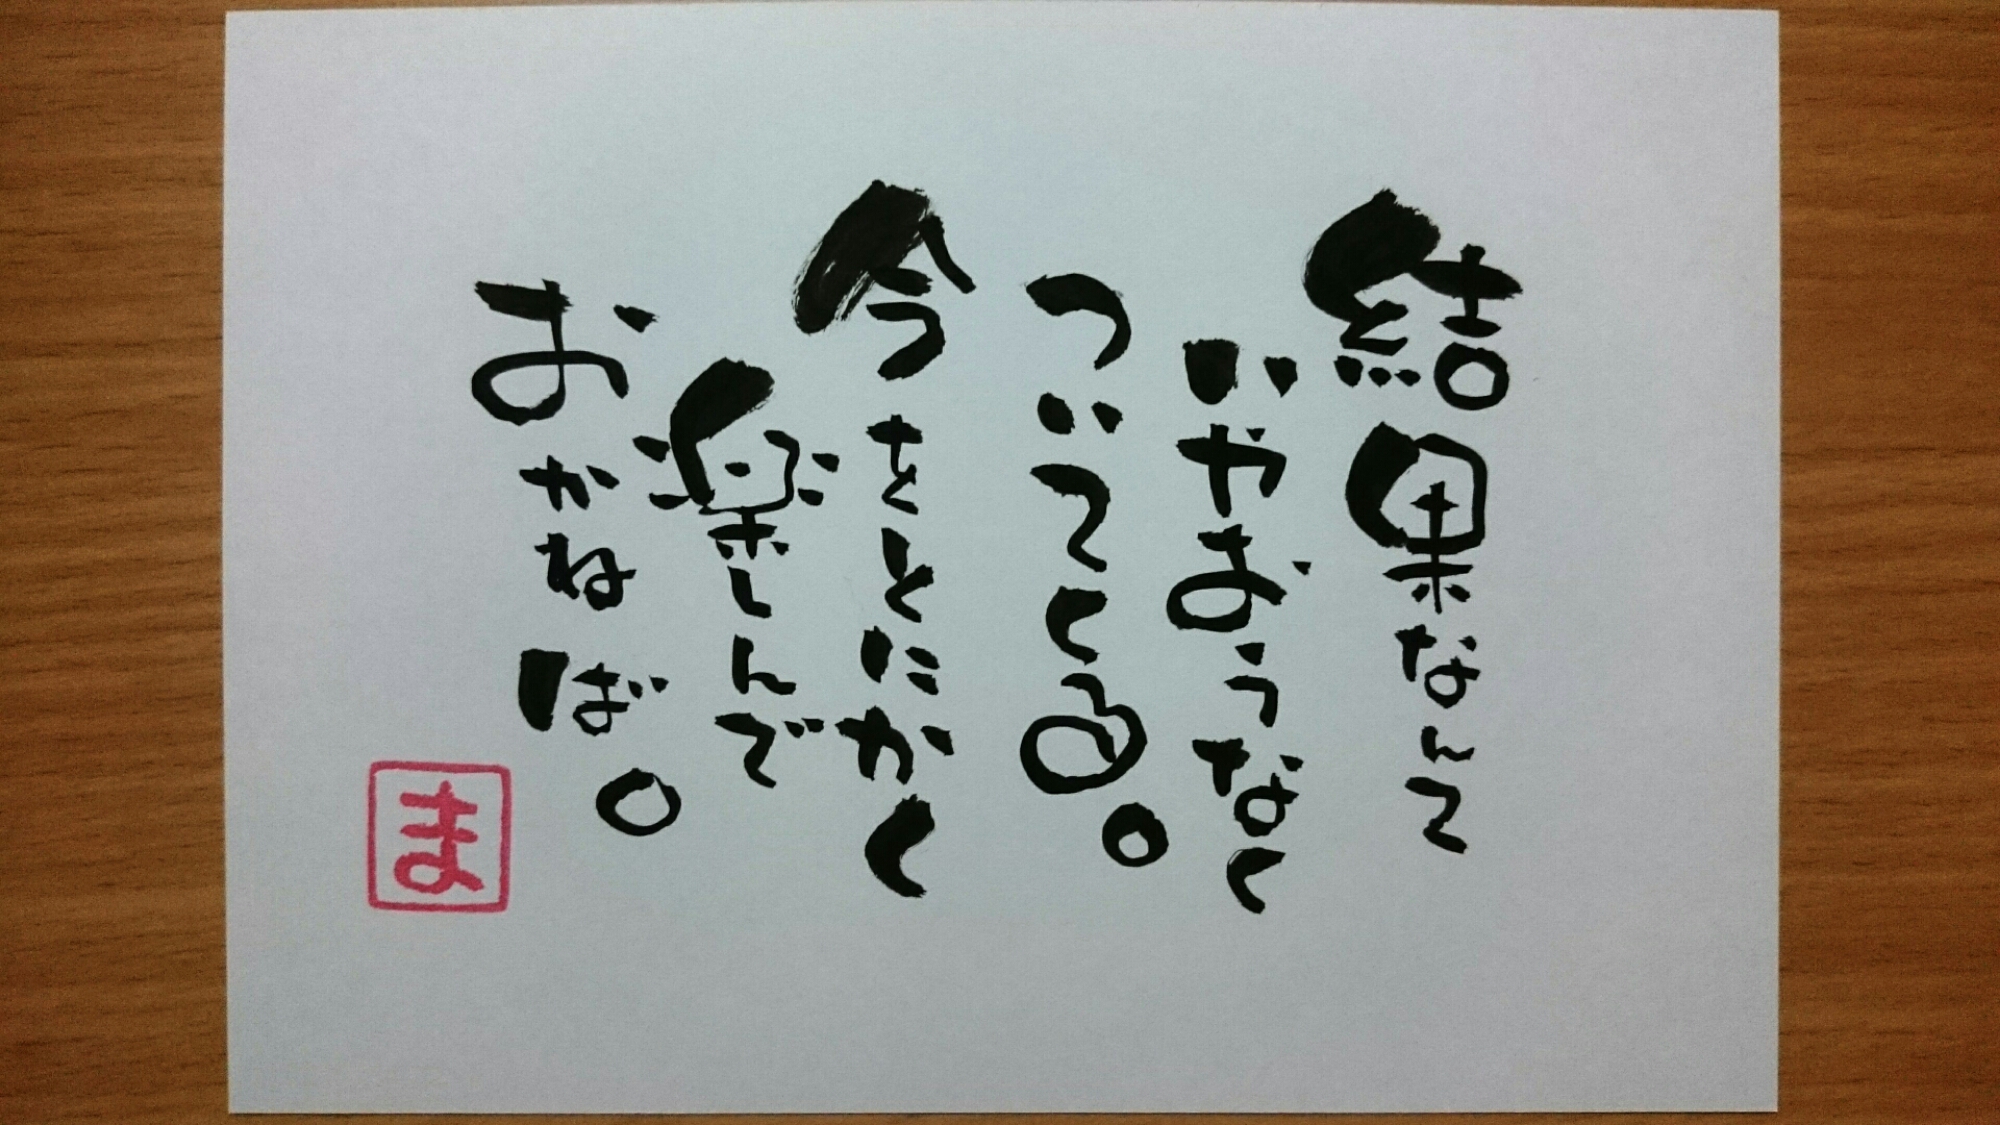 結果なんて
いやおうなく
ついてくる。
今をとにかく
楽しんで
おかねば。
ま